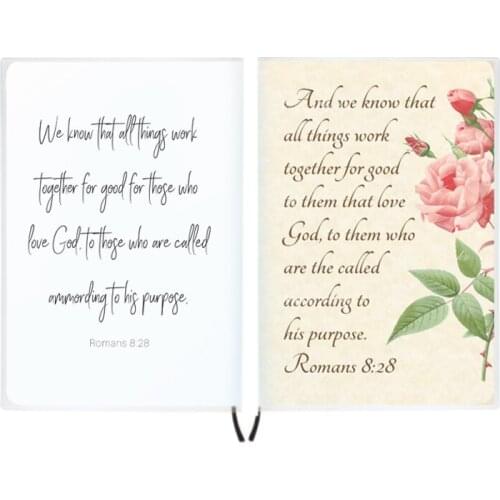 We know that all things work
together for good for those who
love God, to those who are called
ammording to his purpose.
Romans 8:28
And we know that
all things work
together for good
to them that love
God, to them who
are the called
according to
his purpose.
Romans 8:28